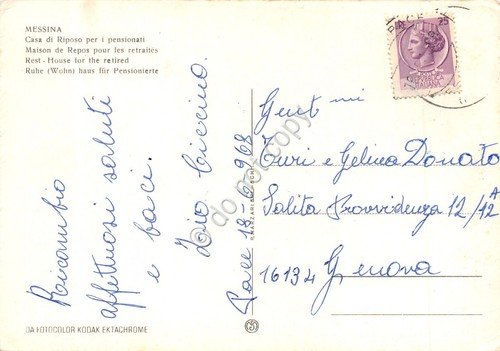 MESSINA
Casa di Riposo per i pensionati
Maison de Repos pour les retraités
Rest - House for the retired
Ruhe (Wohn) haus für Pensionierte
Ricambio
affettuosi saluti
e baci.
Zio Ciccino.
Pace 18/6/968
25
Gent mi
Turi e Gelma Donato
Salita Provvidenza 12/12A
16134 Genova
DA FOTOCOLOR KODAK EKTACHROME
do not copy